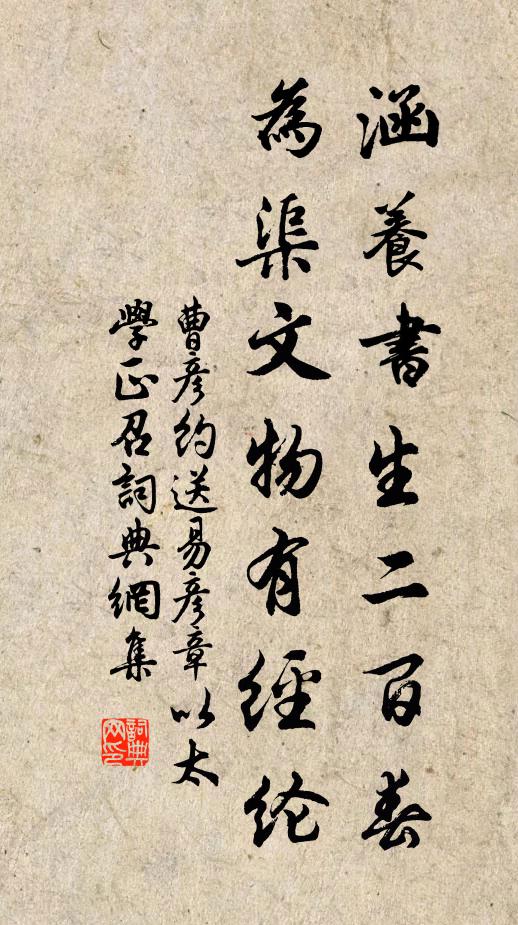 涵養書生二百春
為渠文物有經纶
曹彦約送易彦章以太
學正召詞典網集
詞典網印